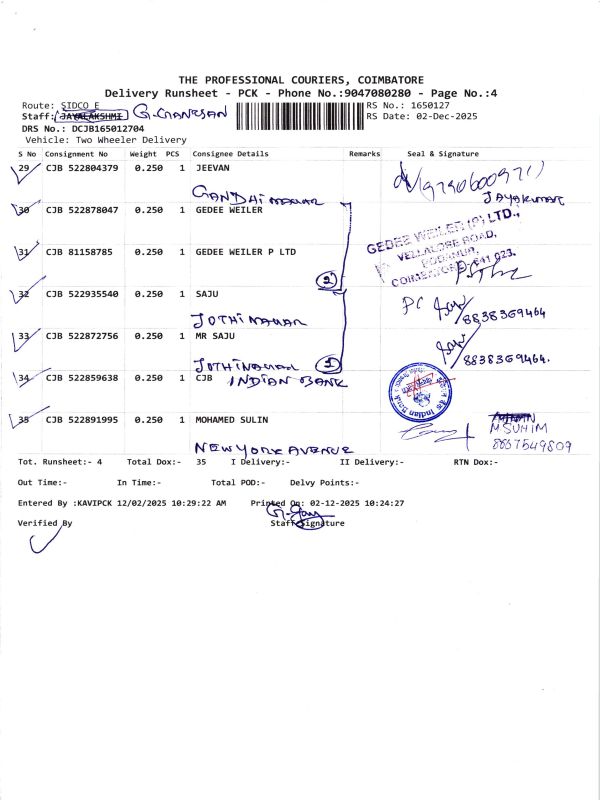 THE PROFESSIONAL COURIERS, COIMBATORE
Delivery Runsheet - PCK - Phone No.:9047080280 - Page No.:4
Route: SIDCO E
RS No.: 1650127
Staff: JAYALAKSHMI G. GANESAN
RS Date: 02-Dec-2025
DRS No.: DCJB165012704
Vehicle: Two Wheeler Delivery
S No Consignment No Weight PCS Consignee Details Remarks Seal & Signature
29 CJB 522804379 0.250 1 JEEVAN
JAYAKUMAR
30 CJB 522878047 0.250 1 GEDEE WEILER
GEDEE WEILER (P) LTD.,
VELLALORE ROAD,
PODANUR,
COIMBATORE-641 023.
31 CJB 81158785 0.250 1 GEDEE WEILER P LTD
2
32 CJB 522935540 0.250 1 SAJU
8838369464
JOTHINAGAR
33 CJB 522872756 0.250 1 MR SAJU
8838369464.
JOTHINAGAR
34 CJB 522859638 0.250 1 CJB INDIAN BANK
35 CJB 522891995 0.250 1 MOHAMED SULIN
8867549809
NEWYORK AVENUE
Tot. Runsheet:- 4 Total Dox:- 35 I Delivery:- II Delivery:- RTN Dox:-
Out Time:- In Time:- Total POD:- Delvy Points:-
Entered By :KAVIPCK 12/02/2025 10:29:22 AM Printed On: 02-12-2025 10:24:27
Verified By Staff Signature